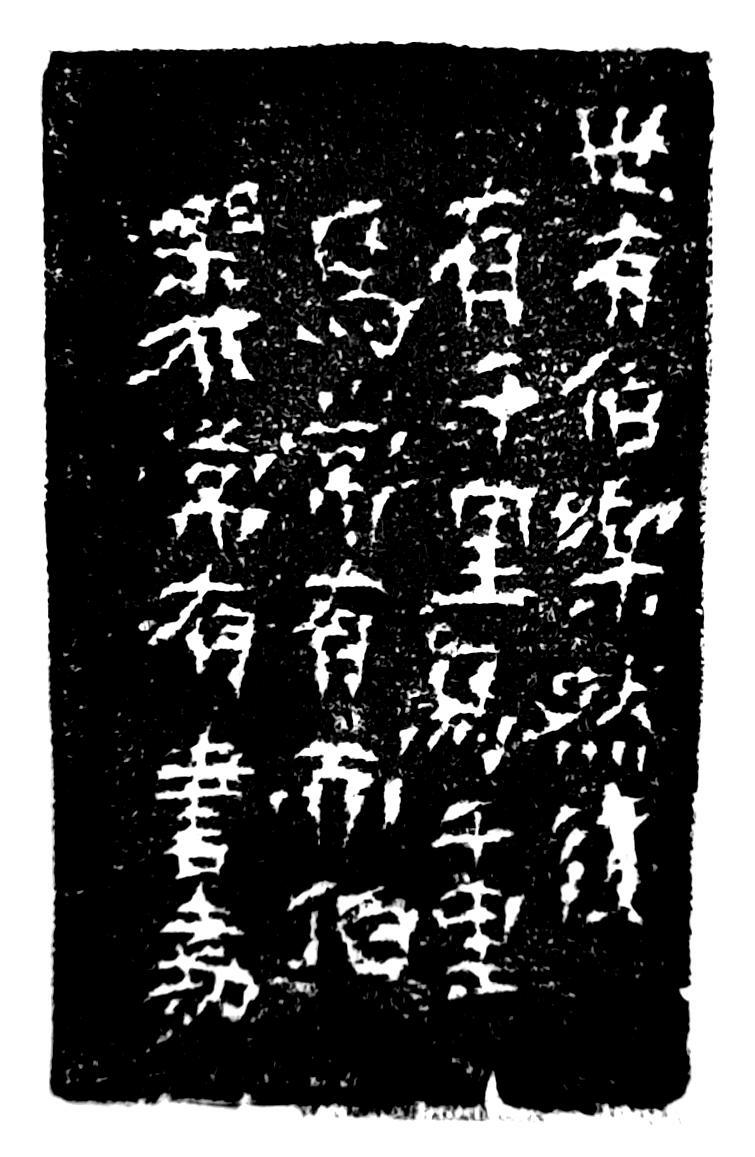 世有伯樂然後
有千里馬千里
馬常有而伯
樂不常有 書嘉